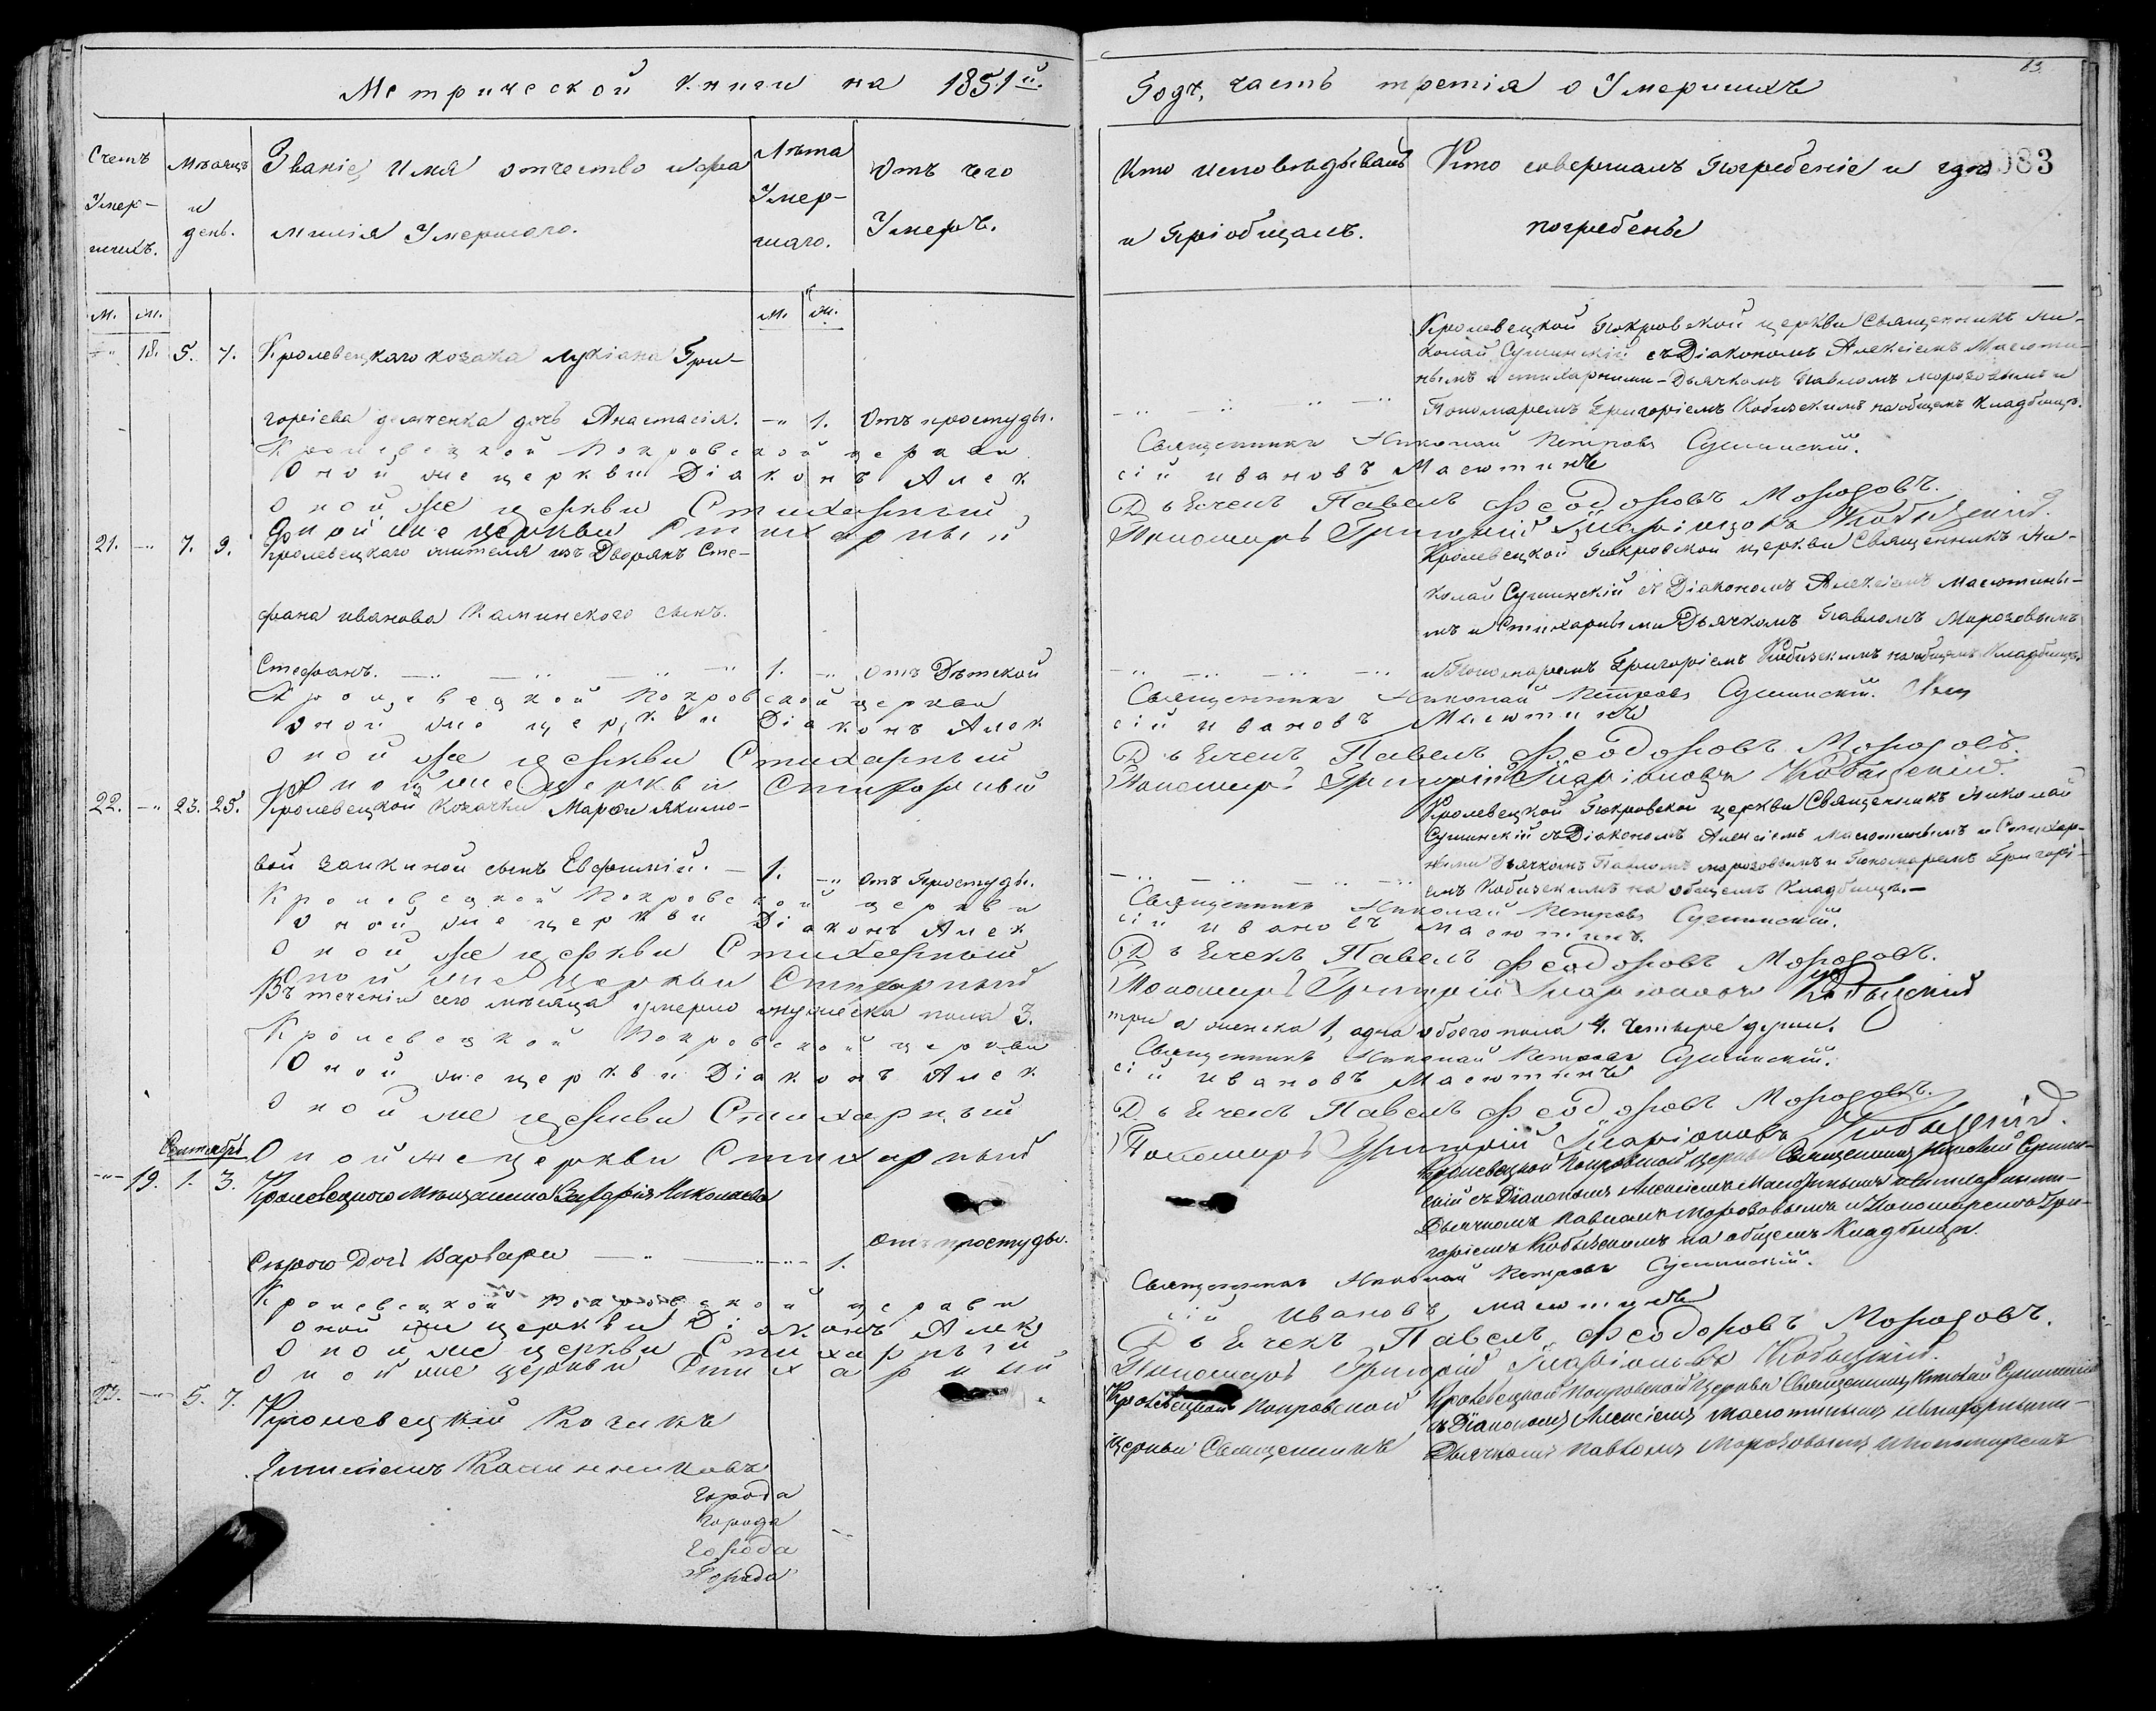 Метрической книги на 1851й.
Счетъ Умер- шихъ.
Мѣсяцъ и день.
Званіе, Имя отчество и фа
милія Умершаго.
Лѣта Умер- шаго.
Отъ чего Умеръ.
м. ж.
м. ж.
18. 5. 7. Кролевецкаго козака Лукіана Гри-
горіева дочь Анастасія. -"- 1. Отъ простуды.
Кролевецкой Покровской церкви
Оной же церкви Діаконъ Алек
Оной же церкви Стихарный
Оной же церкви Стихарный
21. -"- 7. 9. Кролевецкаго жителя изъ Дворянъ Сте-
фана иванова Каминского сынъ.
Стефанъ. 1. -"- отъ Дѣтской
Кролевецкой Покровской церкви
Оной же церкви Діаконъ Алек
Оной же церкви Стихарный
Оной же церкви Стихарный
22. -"- 23. 25. Кролевецкой Козачки Марфы якимо-
вой заикиной сынъ Евфимій. 1. -"- Отъ Простуды.
Кролевецкой Покровской церкви
Оной же церкви Діаконъ Алек
Оной же церкви Стихарный
Оной же церкви Стихарный
Въ теченіи сего мѣсяца умерло мужеска пола 3.
Кролевецкой Покровской церкви
Оной же церкви Діаконъ Алек
Оной же церкви Стихарный
Сентябрь
Оной же церкви Стихарный
-"- 19. 1. 3. Кролевецкого Мѣщанина Захарія Николаева
Сѣрого Дочь Варвара 1. Отъ простуды.
Кролевецкой Покровской церкви
Оной же церкви Діаконъ Алек
Оной же церкви Стихарный
Оной же церкви Стихарный
23. -"- 5. 7. Кролевецкій Козакъ
города
города
города
Города
Годъ, часть третія о Умершихъ
83.
083
Кто исповѣдывалъ
и Пріобщалъ.
Кто совершалъ Погребеніе и гдѣ
погребены
Кролевецкой Покровской церкви Священникъ Ни-
колай Сушинскій съ Діакономъ Алексіемъ Масюти-
нымъ и стихарными-Дьячкомъ Павломъ морозовымъ и
Пономаремъ Григоріемъ Кобизскимъ на общемъ кладбищѣ.
Священникъ Николай Петровъ Сушинскій.
сій ивановъ Масютинъ
Дьячекъ Павелъ Феодоровъ Морозовъ.
Пономарь Григорій Иларіоновъ Кобызскій.
Кролевецкой Покровской церкви Священникъ Ни-
колай Сушинскій съ Діакономъ Алексіемъ Масютины-
мъ и Стихарными Дьячкомъ Павломъ Морозовымъ
и Пономаремъ Григоріемъ Кобизскимъ на общемъ Кладбищѣ.
Священникъ Николай Петровъ Сушинскій.
сій ивановъ Масютинъ
Дьячекъ Павелъ Феодоровъ Морозовъ.
Пономарь Григорій Иларіоновъ Кобызскій.
Кролевецкой Покровской церкви Священникъ Николай
Сушинскій съ Діакономъ Алексіемъ Масютинымъ и Стихар-
ными Дьячкомъ Павломъ морозовымъ и Пономаремъ Григорі-
емъ Кобизскимъ на общемъ Кладбищѣ.-
Священникъ Николай Петровъ Сушинскій.
сій ивановъ масютинъ.
Дьячекъ Павелъ Феодоровъ Морозовъ.
Пономарь Григорій Иларіоновъ Кобызскій
три а женска 1, одна обоего пола 4. Четыре души.
Священникъ Николай Петровъ Сушинскій.
сій ивановъ Масютинъ
Дьячекъ Павелъ Феодоровъ Морозовъ.
Пономарь Григорій Иларіоновъ Кобызскій.
Кролевецкой Покровской церкви Священникъ Николай Сушин-
скій съ Діакономъ Алексіемъ Масютинымъ и Стихарными-
Дьячкомъ Павломъ Морозовымъ и Пономаремъ Гри-
горіемъ Кобызскимъ на общемъ Кладбищѣ.
Священникъ Николай Петровъ Сушинскій.
сій Ивановъ масютинъ
Дьячекъ Павелъ Феодоровъ Морозовъ.
Пономарь Григорій Иларіоновъ Кобызскій.
Кролевецкой Покровской
церкви Священникъ
Кролевецкой Покровской Церкви Священникъ Николай Сушинскій
съ Діакономъ Алексіемъ Масютинымъ и Стихарными-
Дьячкомъ Павломъ Морозовымъ и Пономаремъ